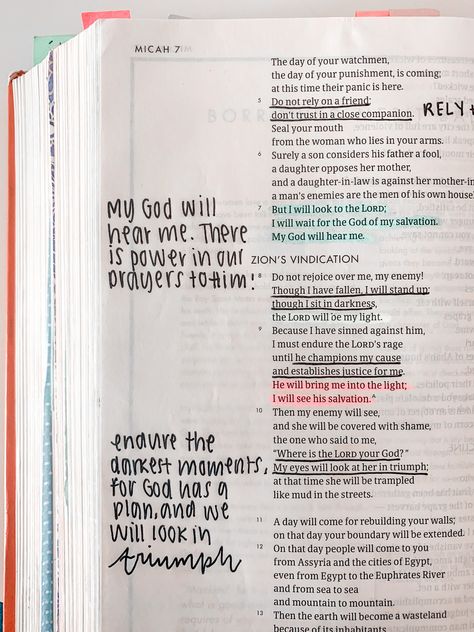 MICAH 7
The day of your watchmen,
the day of your punishment, is coming;
at this time their panic is here.
5 Do not rely on a friend;
don't trust in a close companion. RELY
Seal your mouth
from the woman who lies in your arms.
6 Surely a son considers his father a fool,
a daughter opposes her mother,
and a daughter-in-law is against her mother-in
a man's enemies are the men of his own house
7 But I will look to the LORD;
I will wait for the God of my salvation.
My God will hear me.
MY GOD WILL
hear me. There
is power in our
prayers to Him!
ZION'S VINDICATION
8 Do not rejoice over me, my enemy!
Though I have fallen, I will stand up;
though I sit in darkness,
the LORD will be my light.
9 Because I have sinned against him,
I must endure the LORD's rage
until he champions my cause
and establishes justice for me.
He will bring me into the light;
I will see his salvation.A
10 Then my enemy will see,
and she will be covered with shame,
the one who said to me,
"Where is the LORD your God?"
My eyes will look at her in triumph;
at that time she will be trampled
like mud in the streets.
endure the
darkest moments,
for God has a
plan, and we
will look in
triumph
11 A day will come for rebuilding your walls;
on that day your boundary will be extended.
12 On that day people will come to you
from Assyria and the cities of Egypt,
even from Egypt to the Euphrates River
and from sea to sea
and mountain to mountain.
13 Then the earth will become a wasteland
because of its inhabitants